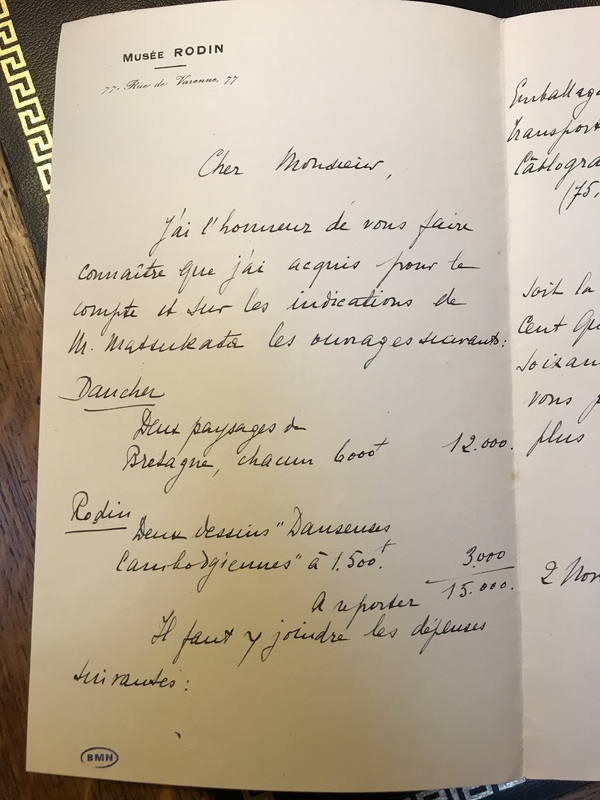 MUSÉE RODIN
77, Rue de Varenne, 77
Cher Monsieur,
J'ai l'honneur de vous faire
connaître que j'ai acquis pour le
compte et sur les indications de
M. Matsukata les ouvrages suivants:
Daucher
Deux paysages de
Bretagne, chacun 6000f 12.000.
Rodin
Deux dessins "Danseuses
Cambodgiennes" à 1.500f. 3.000
A reporter 15.000.
Il faut y joindre les dépenses
suivantes:
BMN
Emballag
transport
Câblogra
(75,
soit la
Cent qu
soixan
vous p
plus
2 Nov